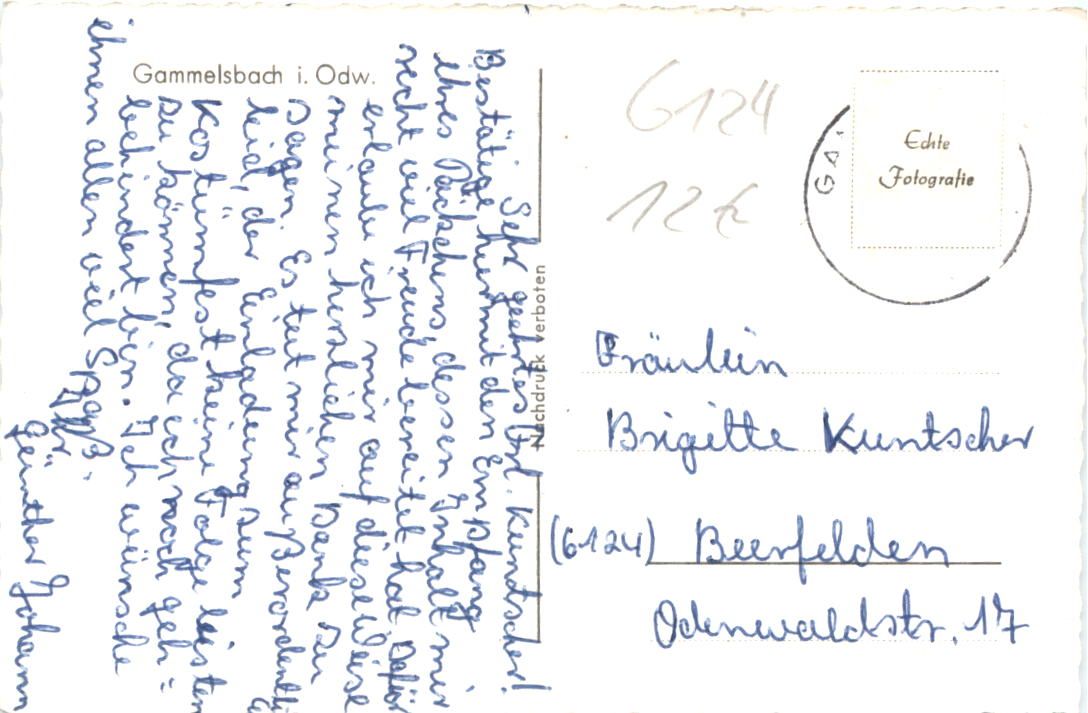 Gammelsbach i. Odw.
Sehr geehrtes Frl. Kuntscher!
Bestätige hiermit den Empfang
ihres Päckchens, dessen Inhalt mir
recht viel Freude bereitet hat. Dafür
erlaube ich mir auf diese Weise
meinen herzlichen Dank zu
sagen. Es tut mir außerordentli
leid, der Einladung zum
Kostümfest keine Folge leisten
zu können, da ich noch geh=
behindert bin. Ich wünsche
ihnen allen viel Spaß.
Ihr
Günther Johann
Nachdruck verboten
6124
12 €
GA
Echte
Fotografie
Fräulein
Brigitte Kuntscher
(6124) Beerfelden
Odenwaldstr. 17